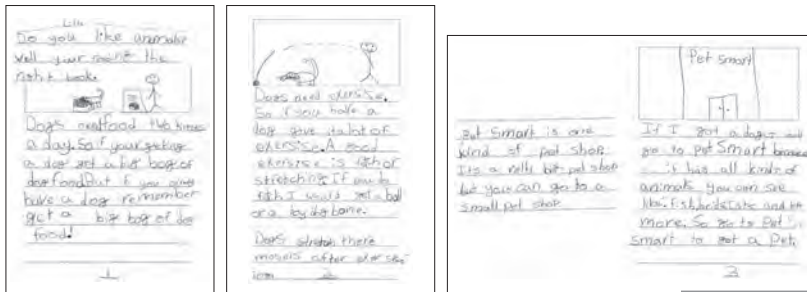 Lilli
Do you like animals
well your reading the
right book.
Dogs need food two times
a day. So if your geting
a dog get a big bag of
dog food But if you alredy
have a dog remember
get a big bag of dog
food!
1
Dogs need exersise.
So if you have a
dog give its lot of
exersise. A good
exersise is fetch or
stretching If you do
fetch I would get a ball
or a toy dog bone.
Dogs stretch there
mosols after exersise
2
pet Smart is one
kind of pet shop
Its a relly big pet shop
but you can go to a
small pet shop
Pet Smart
If I got a dog I will
go to Pet Smart because
it has all kinds of
animals you can see
like. fish, birds, cats and
more. So go to Pet
smart to get a Pet.
3